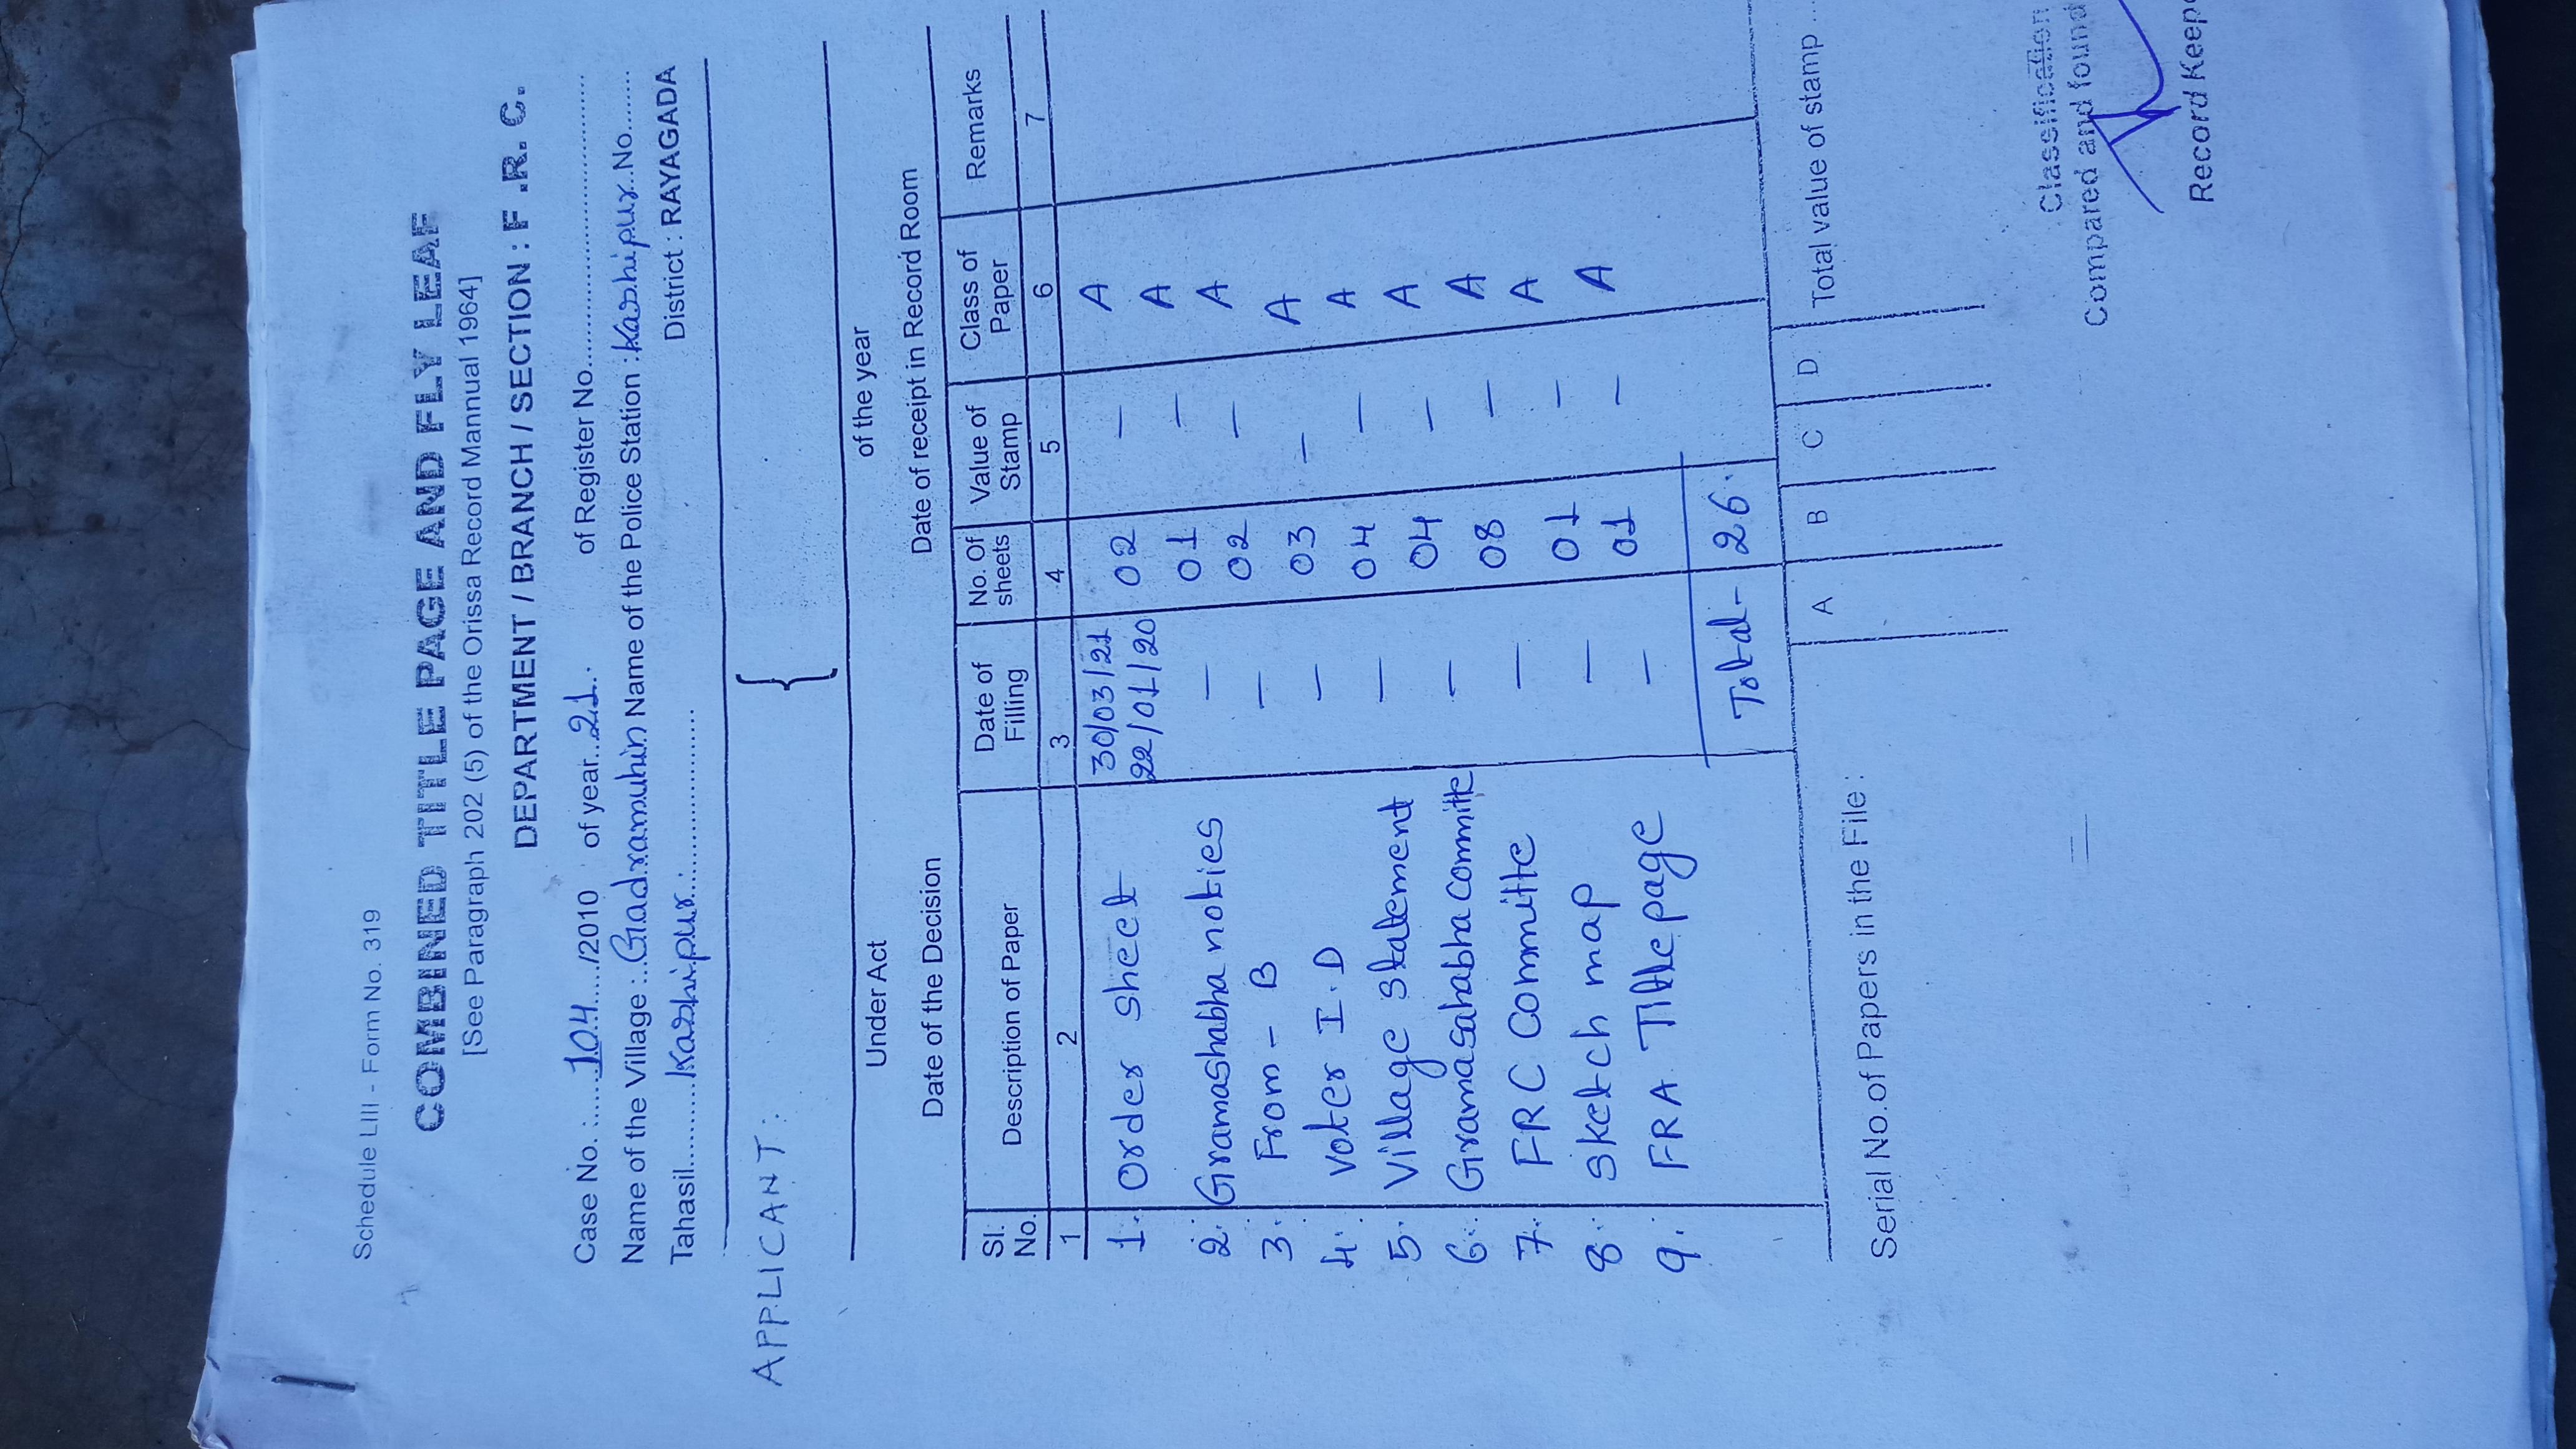 Schedule LIII - Form No. 319
COMBINED TITLE PAGE AND FLY LEAF
[See Paragraph 202 (5) of the Orissa Record Mannual 1964]
DEPARTMENT / BRANCH / SECTION : F .R. C.
Case No. :......104...../2010 of year..21.. of Register No.............................
Name of the Village :..Gadramuhin Name of the Police Station : Kashipur..No.........
Tahasil..........Kashipur........................ District : RAYAGADA
APPLICANT :
{
Under Act of the year
Date of the Decision Date of receipt in Record Room
Sl. No. Description of Paper Date of Filling No. Of sheets Value of Stamp Class of Paper Remarks
1 2 3 4 5 6 7
1. Order sheet 30/03/21 22/01/20 02 — A
2. Gramashabha noties — 01 — A
3. From - B — 02 — A
4. Voter I.D — 03 — A
5. Village statement — 04 — A
6. Gramasahabha committe — 04 — A
7. FRC Committe — 08 — A
8. Sketch map — 01 — A
9. FRA Title page — 01 — A
Total - 26.
A B C D Total value of stamp ...
Serial No. of Papers in the File :
Classification
Compared and found
Record Keep